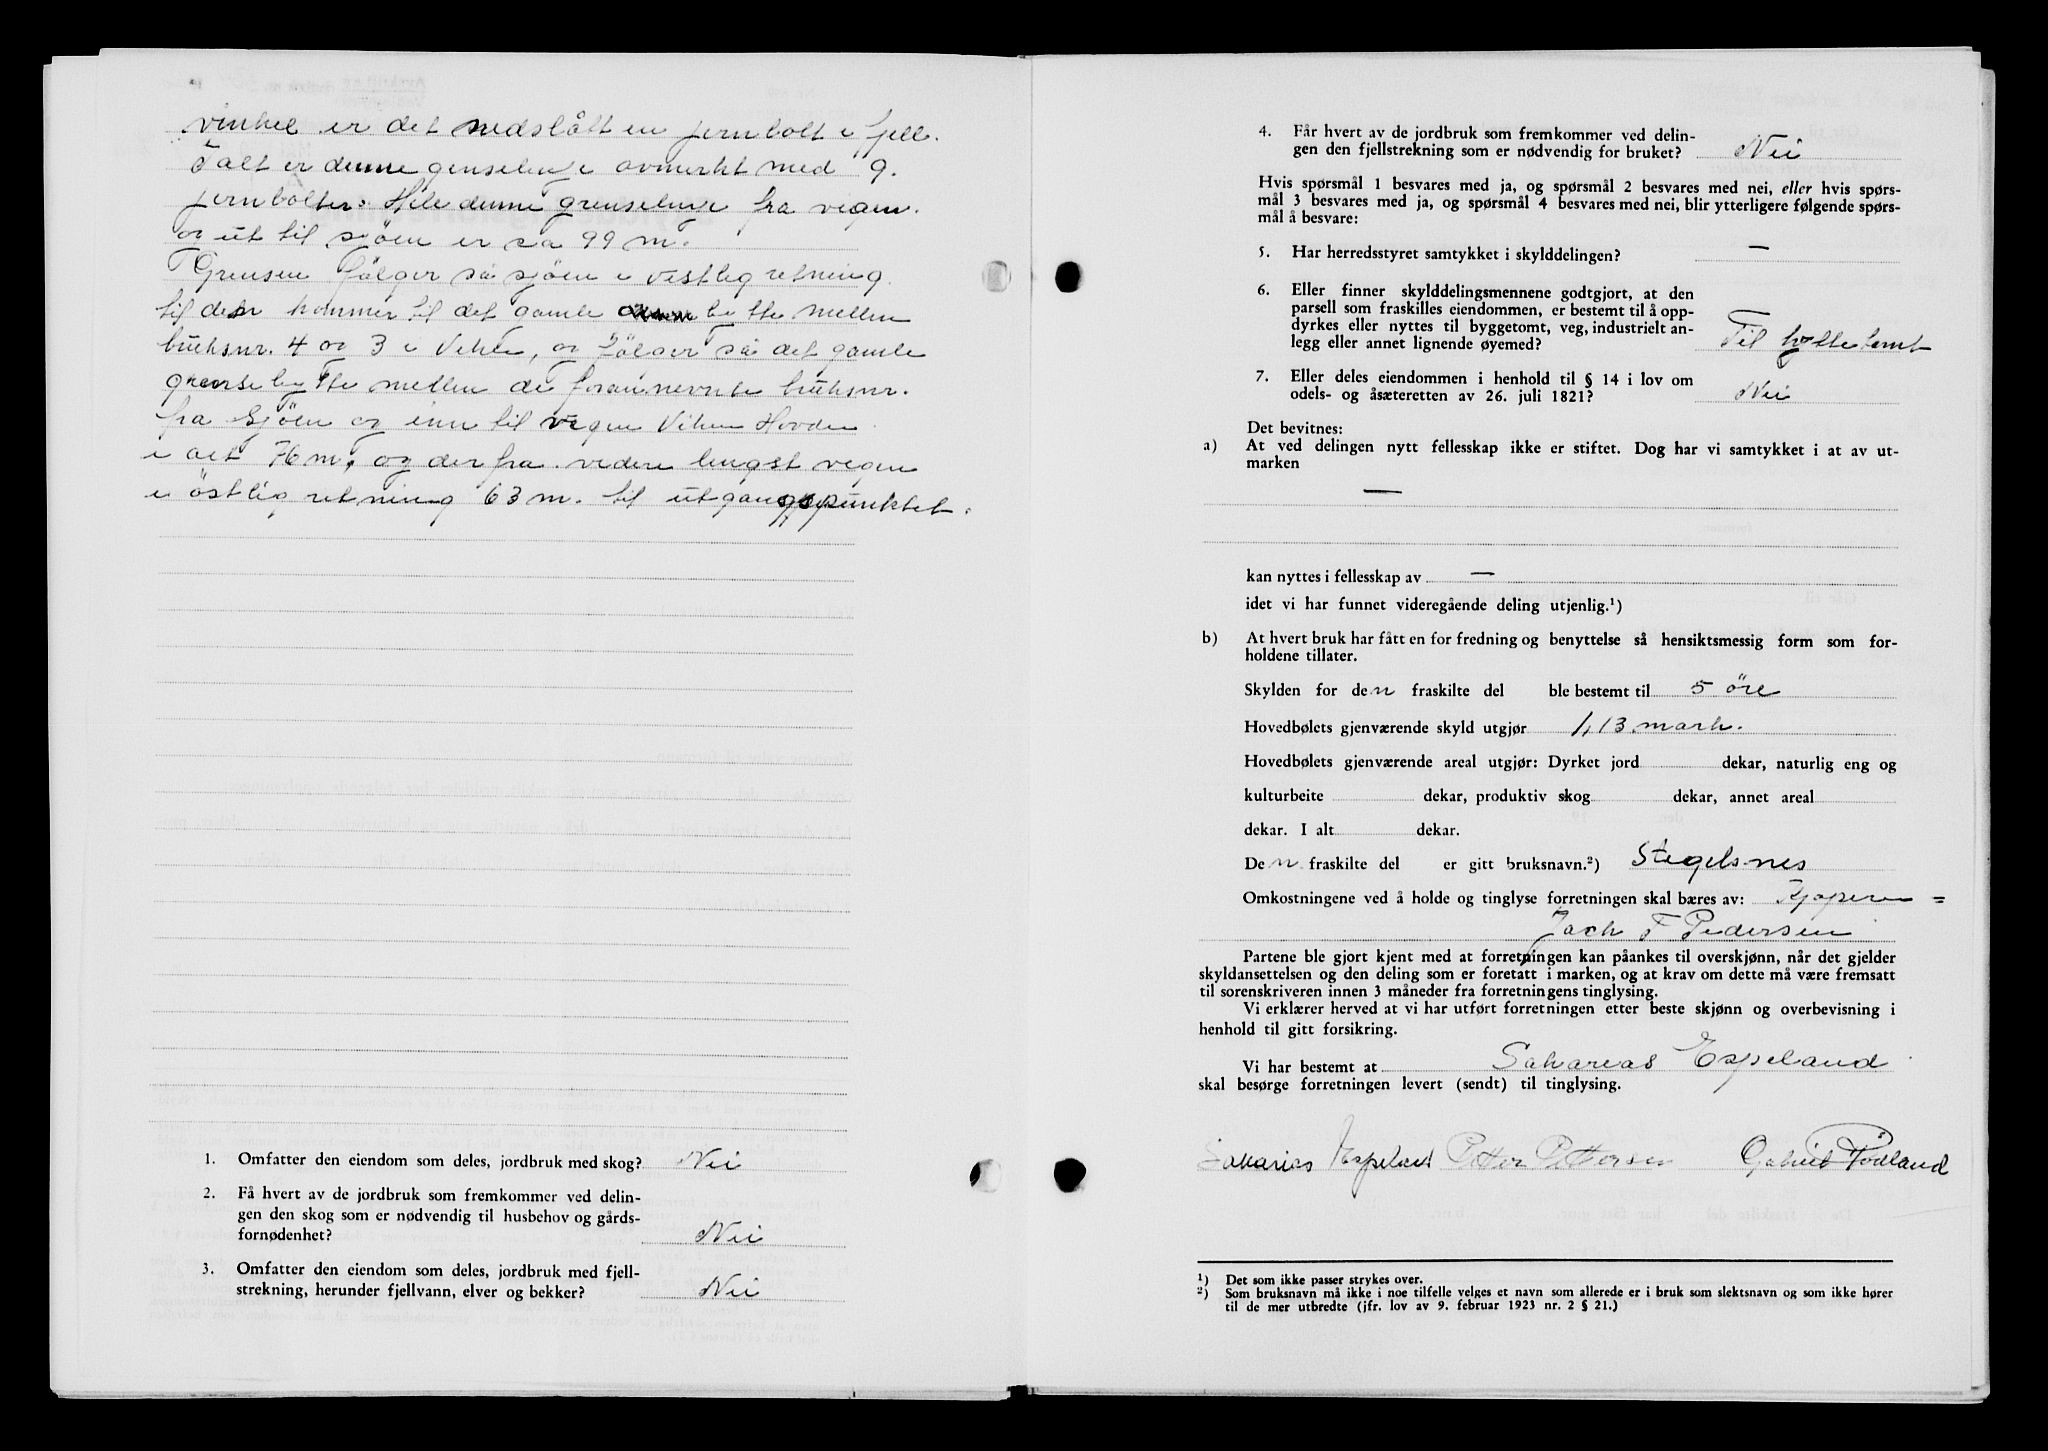 vinkel er det nedslått en jernbolt i fjell.
I alt er denne genselinje avmerkt med 9.
jernbolter. Hele denne grenselinje fra vegen.
og ut til sjöen er ca 99 m.
Grensen fölger så sjöen i vestlig retning.
til den kommer til det gamle bytte mellem
bruksnr. 4 og 3 i Vikse, og fölger så det gamle
grensebytte mellem de forannevnte bruksnr.
fra sjöen og inn til vegen Hovden
i alt 76 m, og derfra videre lengst vegen
i östlig retning 63 m. til utgangspunktet.
1. Omfatter den eiendom som deles, jordbruk med skog? Nei
2. Få hvert av de jordbruk som fremkommer ved delin-
gen den skog som er nødvendig til husbehov og gårds-
fornødenhet? Nei
3. Omfatter den eiendom som deles, jordbruk med fjell-
strekning, herunder fjellvann, elver og bekker? Nei
4. Får hvert av de jordbruk som fremkommer ved delin-
gen den fjellstrekning som er nødvendig for bruket? Nei
Hvis spørsmål 1 besvares med ja, og spørsmål 2 besvares med nei, eller hvis spørs-
mål 3 besvares med ja, og spørsmål 4 besvares med nei, blir ytterligere følgende spørs-
mål å besvare:
5. Har herredsstyret samtykket i skylddelingen? —
6. Eller finner skylddelingsmennene godtgjort, at den
parsell som fraskilles eiendommen, er bestemt til å opp-
dyrkes eller nyttes til byggetomt, veg, industrielt an-
legg eller annet lignende øyemed? Til hyttetomt
7. Eller deles eiendommen i henhold til § 14 i lov om
odels- og åsæteretten av 26. juli 1821? Nei
Det bevitnes:
a) At ved delingen nytt fellesskap ikke er stiftet. Dog har vi samtykket i at av ut-
marken
—
kan nyttes i fellesskap av —
idet vi har funnet videregående deling utjenlig.¹)
b) At hvert bruk har fått en for fredning og benyttelse så hensiktsmessig form som for-
holdene tillater.
Skylden for den fraskilte del ble bestemt til 5 öre
Hovedbølets gjenværende skyld utgjør 1,13 mark.
Hovedbølets gjenværende areal utgjør: Dyrket jord dekar, naturlig eng og
kulturbeite dekar, produktiv skog dekar, annet areal
dekar. I alt dekar.
Den fraskilte del er gitt bruksnavn.²) Stegelsnes
Omkostningene ved å holde og tinglyse forretningen skal bæres av: Kjøperen =
Zach T Pedersen
Partene ble gjort kjent med at forretningen kan påankes til overskjønn, når det gjelder
skyldansettelsen og den deling som er foretatt i marken, og at krav om dette må være fremsatt
til sorenskriveren innen 3 måneder fra forretningens tinglysing.
Vi erklærer herved at vi har utført forretningen etter beste skjønn og overbevisning i
henhold til gitt forsikring.
Vi har bestemt at Sakarias Espeland
skal besørge forretningen levert (sendt) til tinglysing.
Sakarias Espeland Petter Pettersen Gabriel Rödland
¹) Det som ikke passer strykes over.
²) Som bruksnavn må ikke i noe tilfelle velges et navn som allerede er i bruk som slektsnavn og som ikke hører
til de mer utbredte (jfr. lov av 9. februar 1923 nr. 2 § 21.)